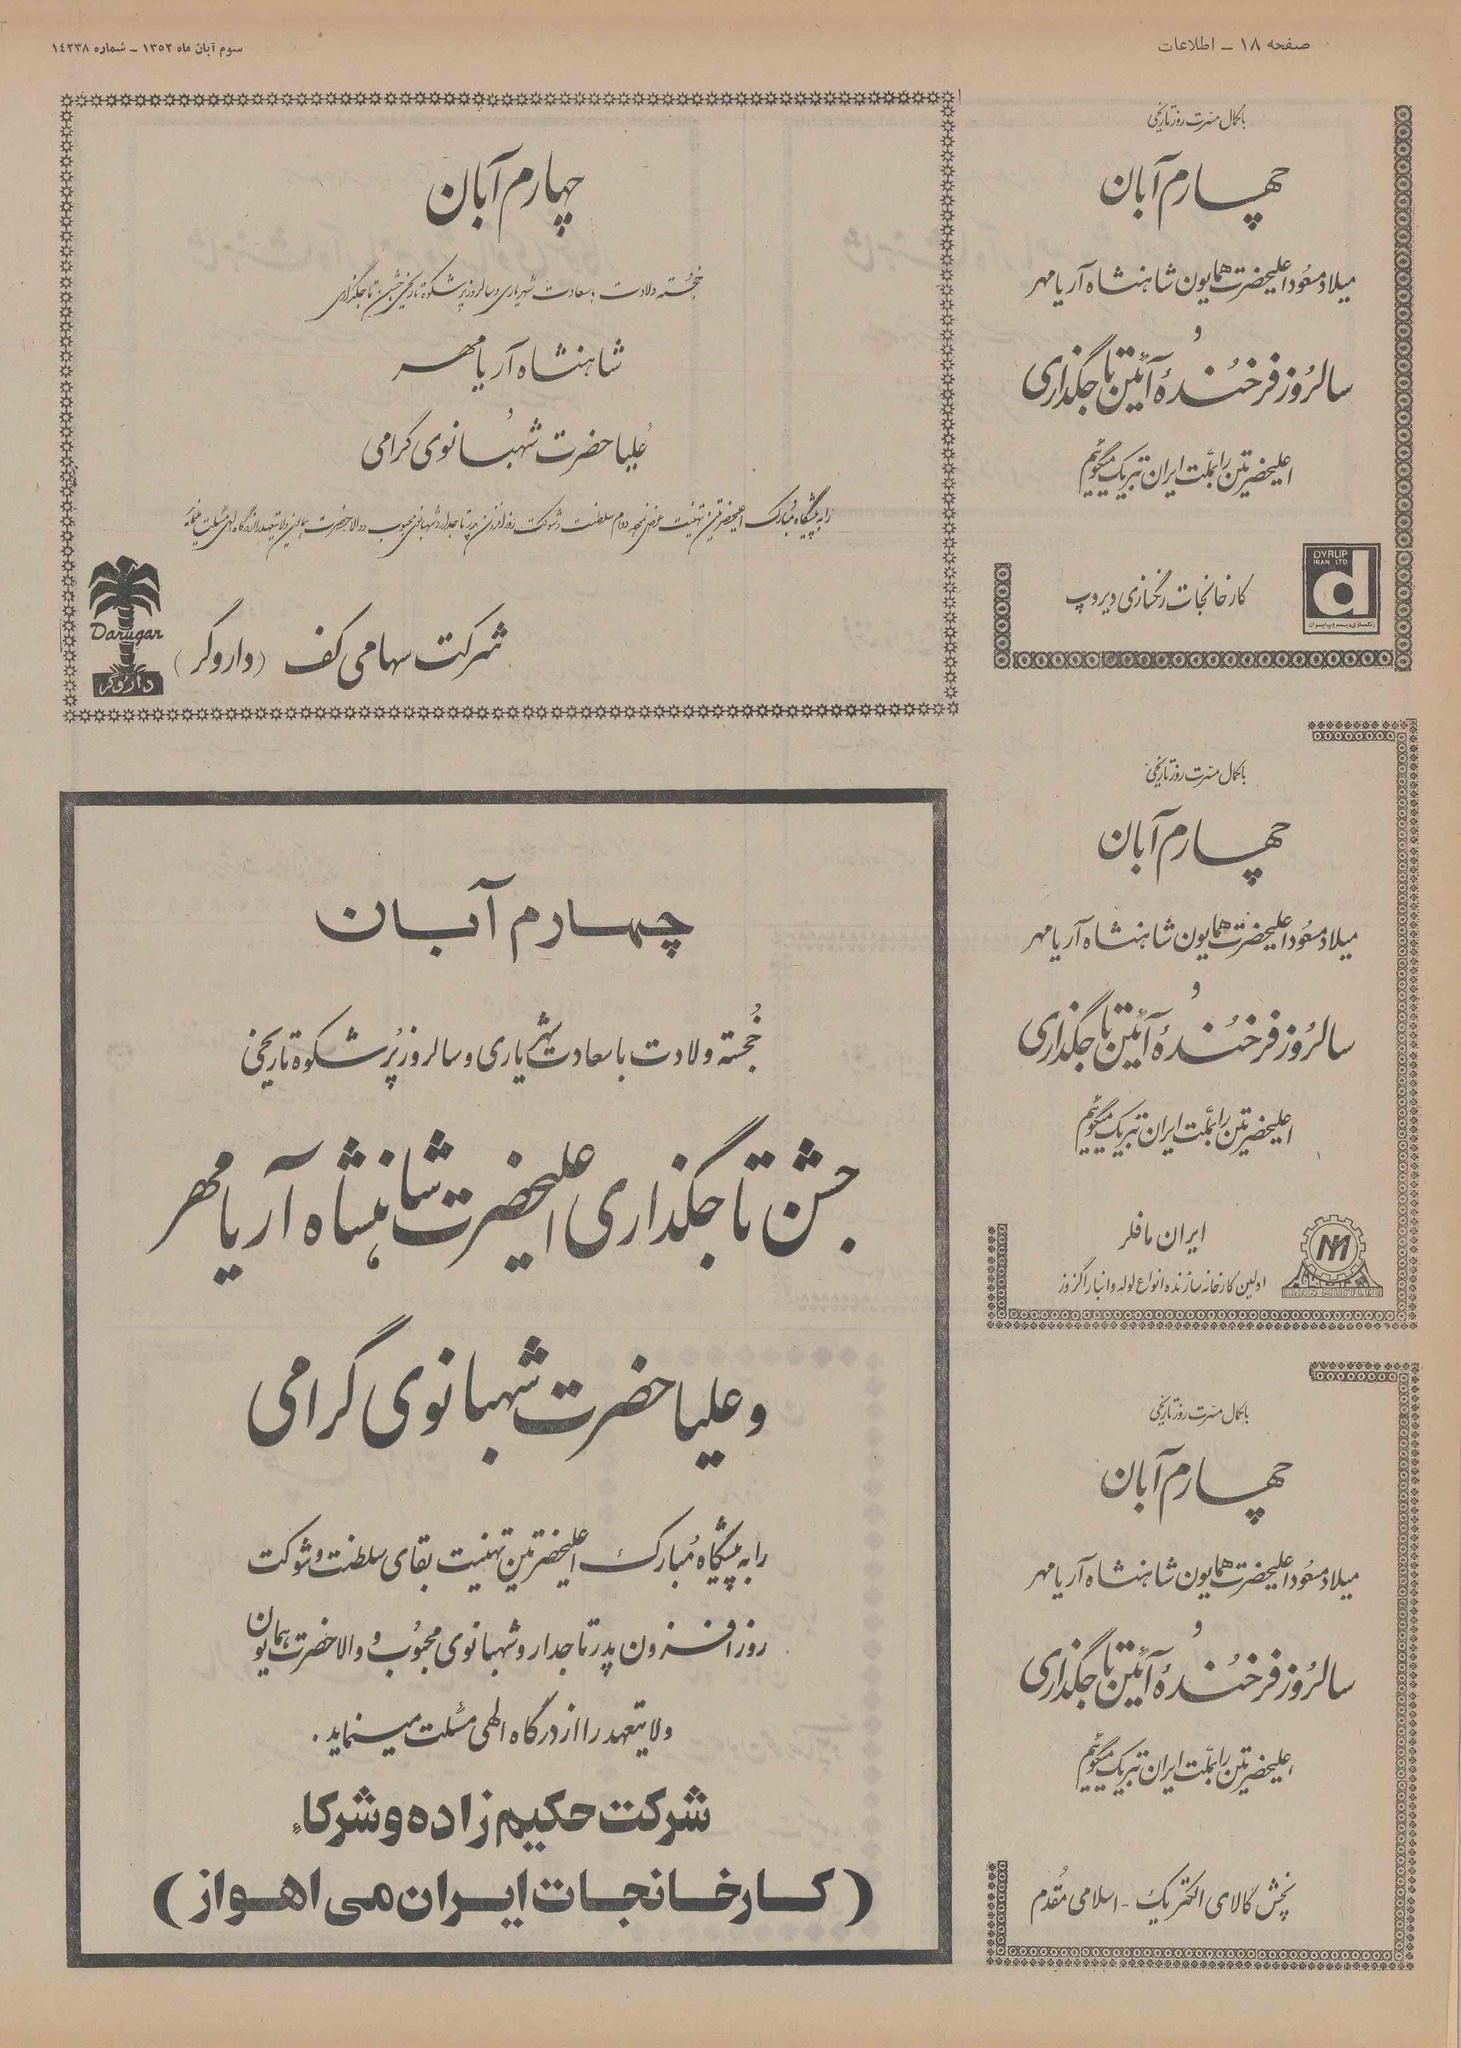 صفحه ۱۸ ـ اطلاعات
سوم آبان ماه ۱۳۵۲ ـ شماره ۱٤۲۳۸
باکمال مسرت روز تاریخی
چهارم آبان
میلاد مسعود اعلیحضرت همایون شاهنشاه آریامهر
و
سالروز فرخنده آئین تاجگذاری
اعلیحضرتین را بملت ایران تبریک میگوئیم
DYRUP
IRAN LTD
d
رنگسازی دیروپ ایران
کارخانجات رنگسازی دیروپ
چهارم آبان
خجسته ولادت باسعادت شهریاری و سالروز پرشکوه تاریخی جشن تاجگذاری
شاهنشاه آریامهر
علیاحضرت شهبانوی گرامی
را به پیشگاه مبارک اعلیحضرتین تهنیت عرض نموده دوام سلطنت و شوکت روزافزون پدر تاجدار و شهبانوی محبوب و والاحضرت همایون ولایتعهد را از درگاه الهی مسئلت مینماید
شرکت سهامی کف (داروگر)
Darugar
داروگر
باکمال مسرت روز تاریخی
چهارم آبان
میلاد مسعود اعلیحضرت همایون شاهنشاه آریامهر
و
سالروز فرخنده آئین تاجگذاری
اعلیحضرتین را بملت ایران تبریک میگوئیم
ایران مافلر
اولین کارخانه سازنده انواع لوله و انبار اگزوز
چهارم آبان
خجسته ولادت باسعادت شهریاری و سالروز پرشکوه تاریخی
جشن تاجگذاری اعلیحضرت شاهنشاه آریامهر
و علیاحضرت شهبانوی گرامی
را به پیشگاه مبارک اعلیحضرتین تهنیت بقای سلطنت و شوکت
روزافزون پدر تاجدار و شهبانوی محبوب و والاحضرت همایون
ولایتعهد را از درگاه الهی مسئلت مینماید.
شرکت حکیم زاده و شرکاء
(کارخانجات ایران می اهواز)
باکمال مسرت روز تاریخی
چهارم آبان
میلاد مسعود اعلیحضرت همایون شاهنشاه آریامهر
و
سالروز فرخنده آئین تاجگذاری
اعلیحضرتین را بملت ایران تبریک میگوئیم
پخش کالای الکتریک - اسلامی مقدم